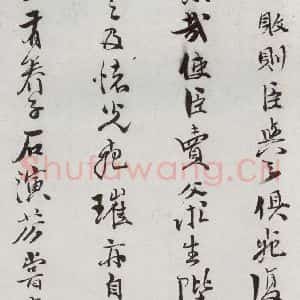 敗則臣與之俱死復
哉使臣賣父求生陛
之及懷光死璀亦自
養子石演芬嘗
Shufawang.Cn